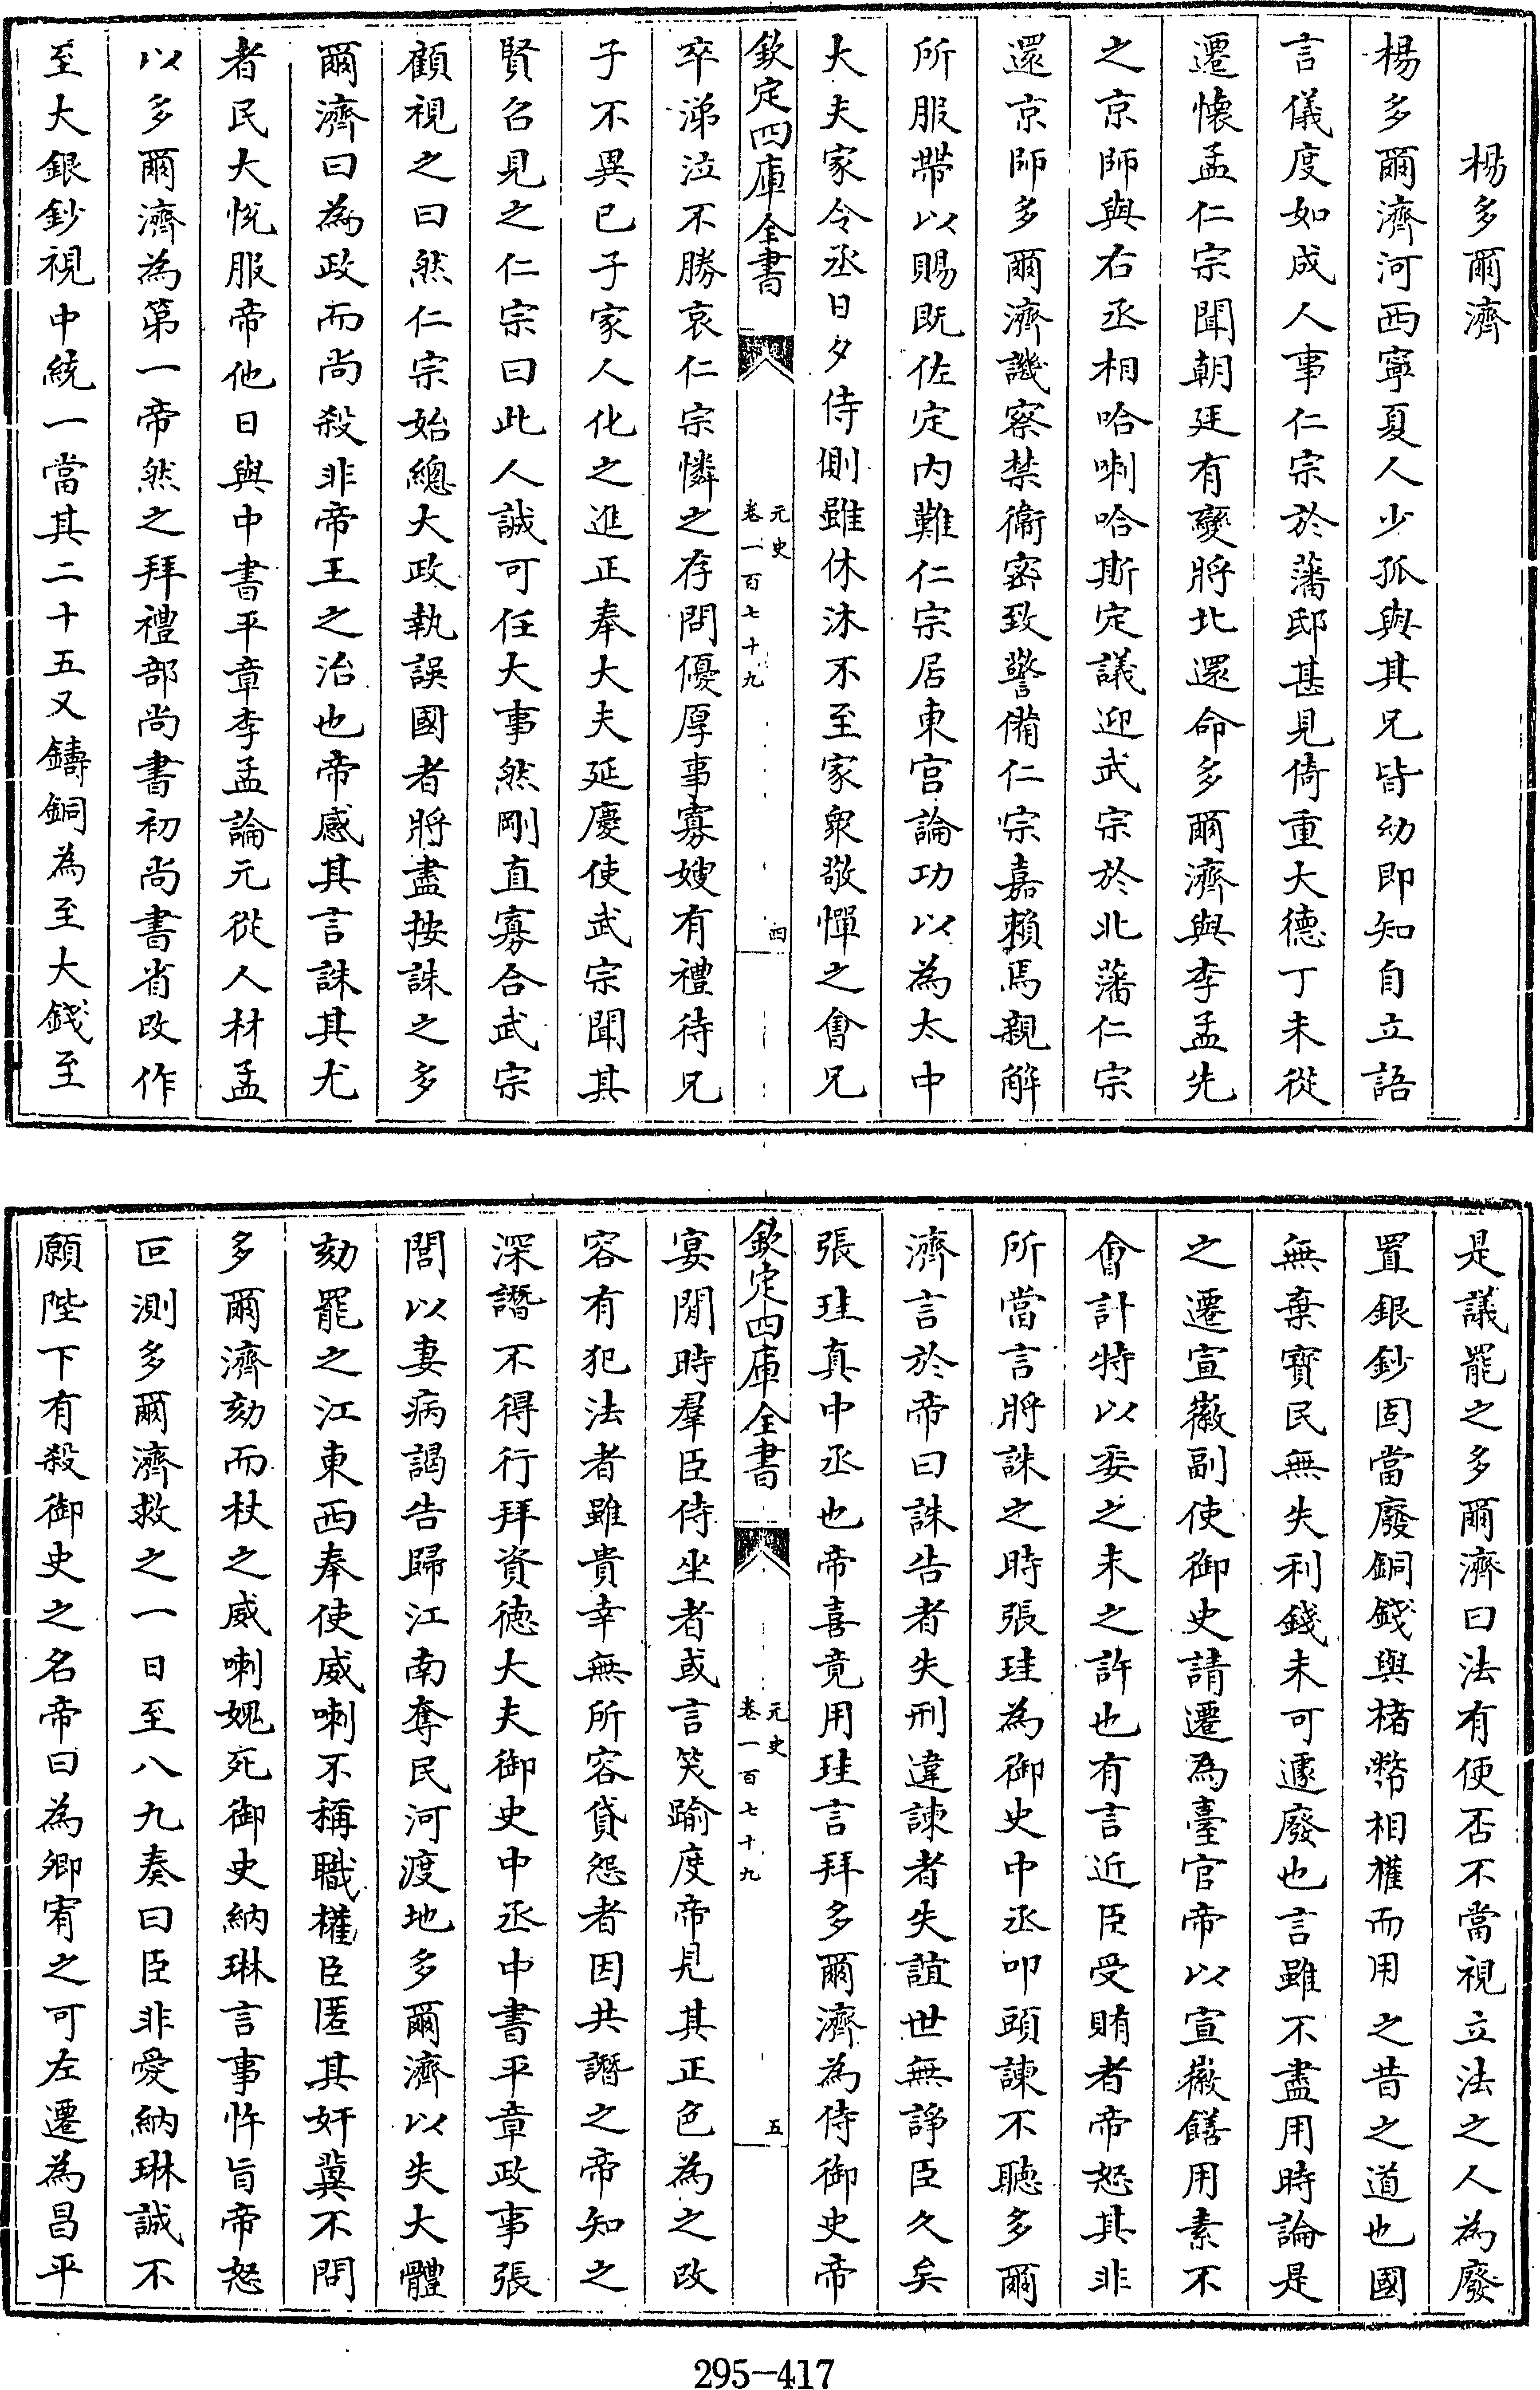 楊多爾濟
楊多爾濟河西寧夏人少孤與其兄皆幼即知自立語
言儀度如成人事仁宗於藩邸甚見倚重大德丁未從
遷懐孟仁宗聞朝廷有變將北還命多爾濟與李孟先
之京師與右丞相哈喇哈斯定議迎武宗於北藩仁宗
還京師多爾濟譏察禁衛密致警備仁宗嘉賴焉親解
所服帶以賜既佐定内難仁宗居東宫論功以為太中
大夫家令丞日夕侍側雖休沐不至家衆敬憚之會兄
欽定四庫全書
元史
卷一百七十九
四
卒涕泣不勝哀仁宗憐之存問優厚事寡嫂有禮待兄
子不異已子家人化之進正奉大夫延慶使武宗聞其
賢召見之仁宗曰此人誠可任大事然剛直寡合武宗
顧視之曰然仁宗始總大政執誤國者將盡按誅之多
爾濟曰為政而尚殺非帝王之治也帝感其言誅其尤
者民大恱服帝他日與中書平章李孟論元從人材孟
以多爾濟為第一帝然之拜禮部尚書初尚書省改作
至大銀鈔視中統一當其二十五又鑄銅為至大錢至
是議罷之多爾濟曰法有便否不當視立法之人為廢
置銀鈔固當廢銅錢與楮幣相權而用之昔之道也國
無棄寳民無失利錢未可遽廢也言雖不盡用時論是
之遷宣徽副使御史請遷為臺官帝以宣徽饍用素不
會計特以委之未之許也有言近臣受賄者帝怒其非
所當言將誅之時張珪為御史中丞叩頭諫不聽多爾
濟言於帝曰誅告者失刑違諫者失誼世無諍臣久矣
張珪真中丞也帝喜竟用珪言拜多爾濟為侍御史帝
欽定四庫全書
元史
卷一百七十九
五
宴閒時羣臣侍坐者或言笑踰度帝見其正色為之改
容有犯法者雖貴幸無所容貸怨者因共譖之帝知之
深譖不得行拜資德大夫御史中丞中書平章政事張
閭以妻病謁告歸江南奪民河渡地多爾濟以失大體
劾罷之江東西奉使威喇不稱職權臣匿其奸冀不問
多爾濟劾而杖之威喇媿死御史納琳言事忤旨帝怒
叵測多爾濟救之一日至八九奏曰臣非愛納琳誠不
願陛下有殺御史之名帝曰為卿宥之可左遷為昌平
295-417